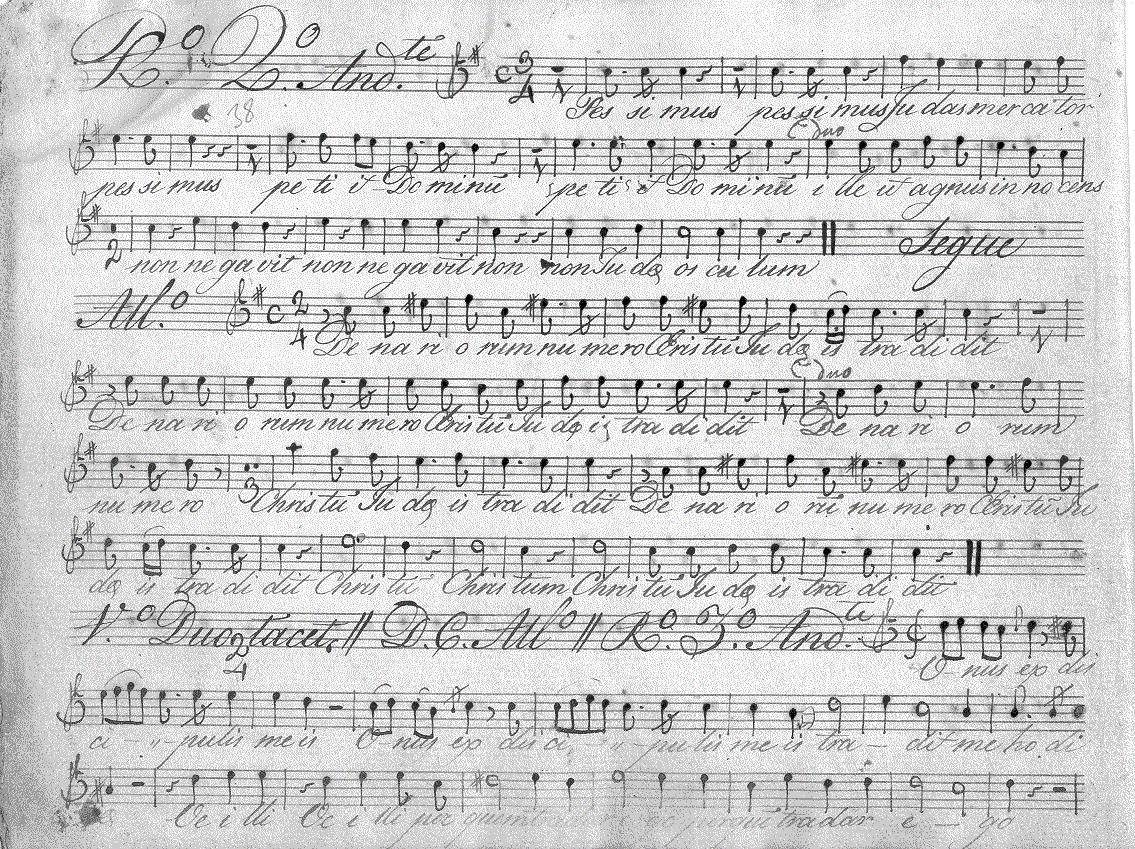 R.º 2.º And.te
Pes si mus pes si mus Ju das mer ca tor
38
C duo
pes si mus pe ti it Do minũ pe ti it Do mi nũ i lle ut agnus in no cens
non ne ga vit non ne ga vit non non Ju dæ os cu lum Segue
All.º
De na ri o rum nu me ro Cris tũ Ju dæ is tra di dit
C duo
De na ri o rum nu me ro Cris tũ Ju dæ is tra di dit De na ri o rum
nu me ro Chris tũ Ju dæ is tra di dit De na ri o rũ nu me ro Cris tũ Ju
dæ is tra di dit Chris tũ Chris tum Chris tũ Ju dæ is tra di dit
V.º Duo tacet // D.C. All.º // R.º 3.º And.te
O-nus ex dis
ci-pulis me is O-nus ex dis ci pu lis me is tra-dit me ho di
Væ i lli Væ i lli per quem tradar e-go